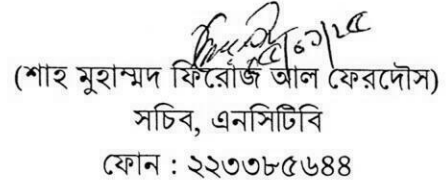 (শাহ মুহাম্মদ ফিরোজ আল ফেরদৌস)
সচিব, এনসিটিবি
ফোন : ২২৩৩৮৫৬৪৪